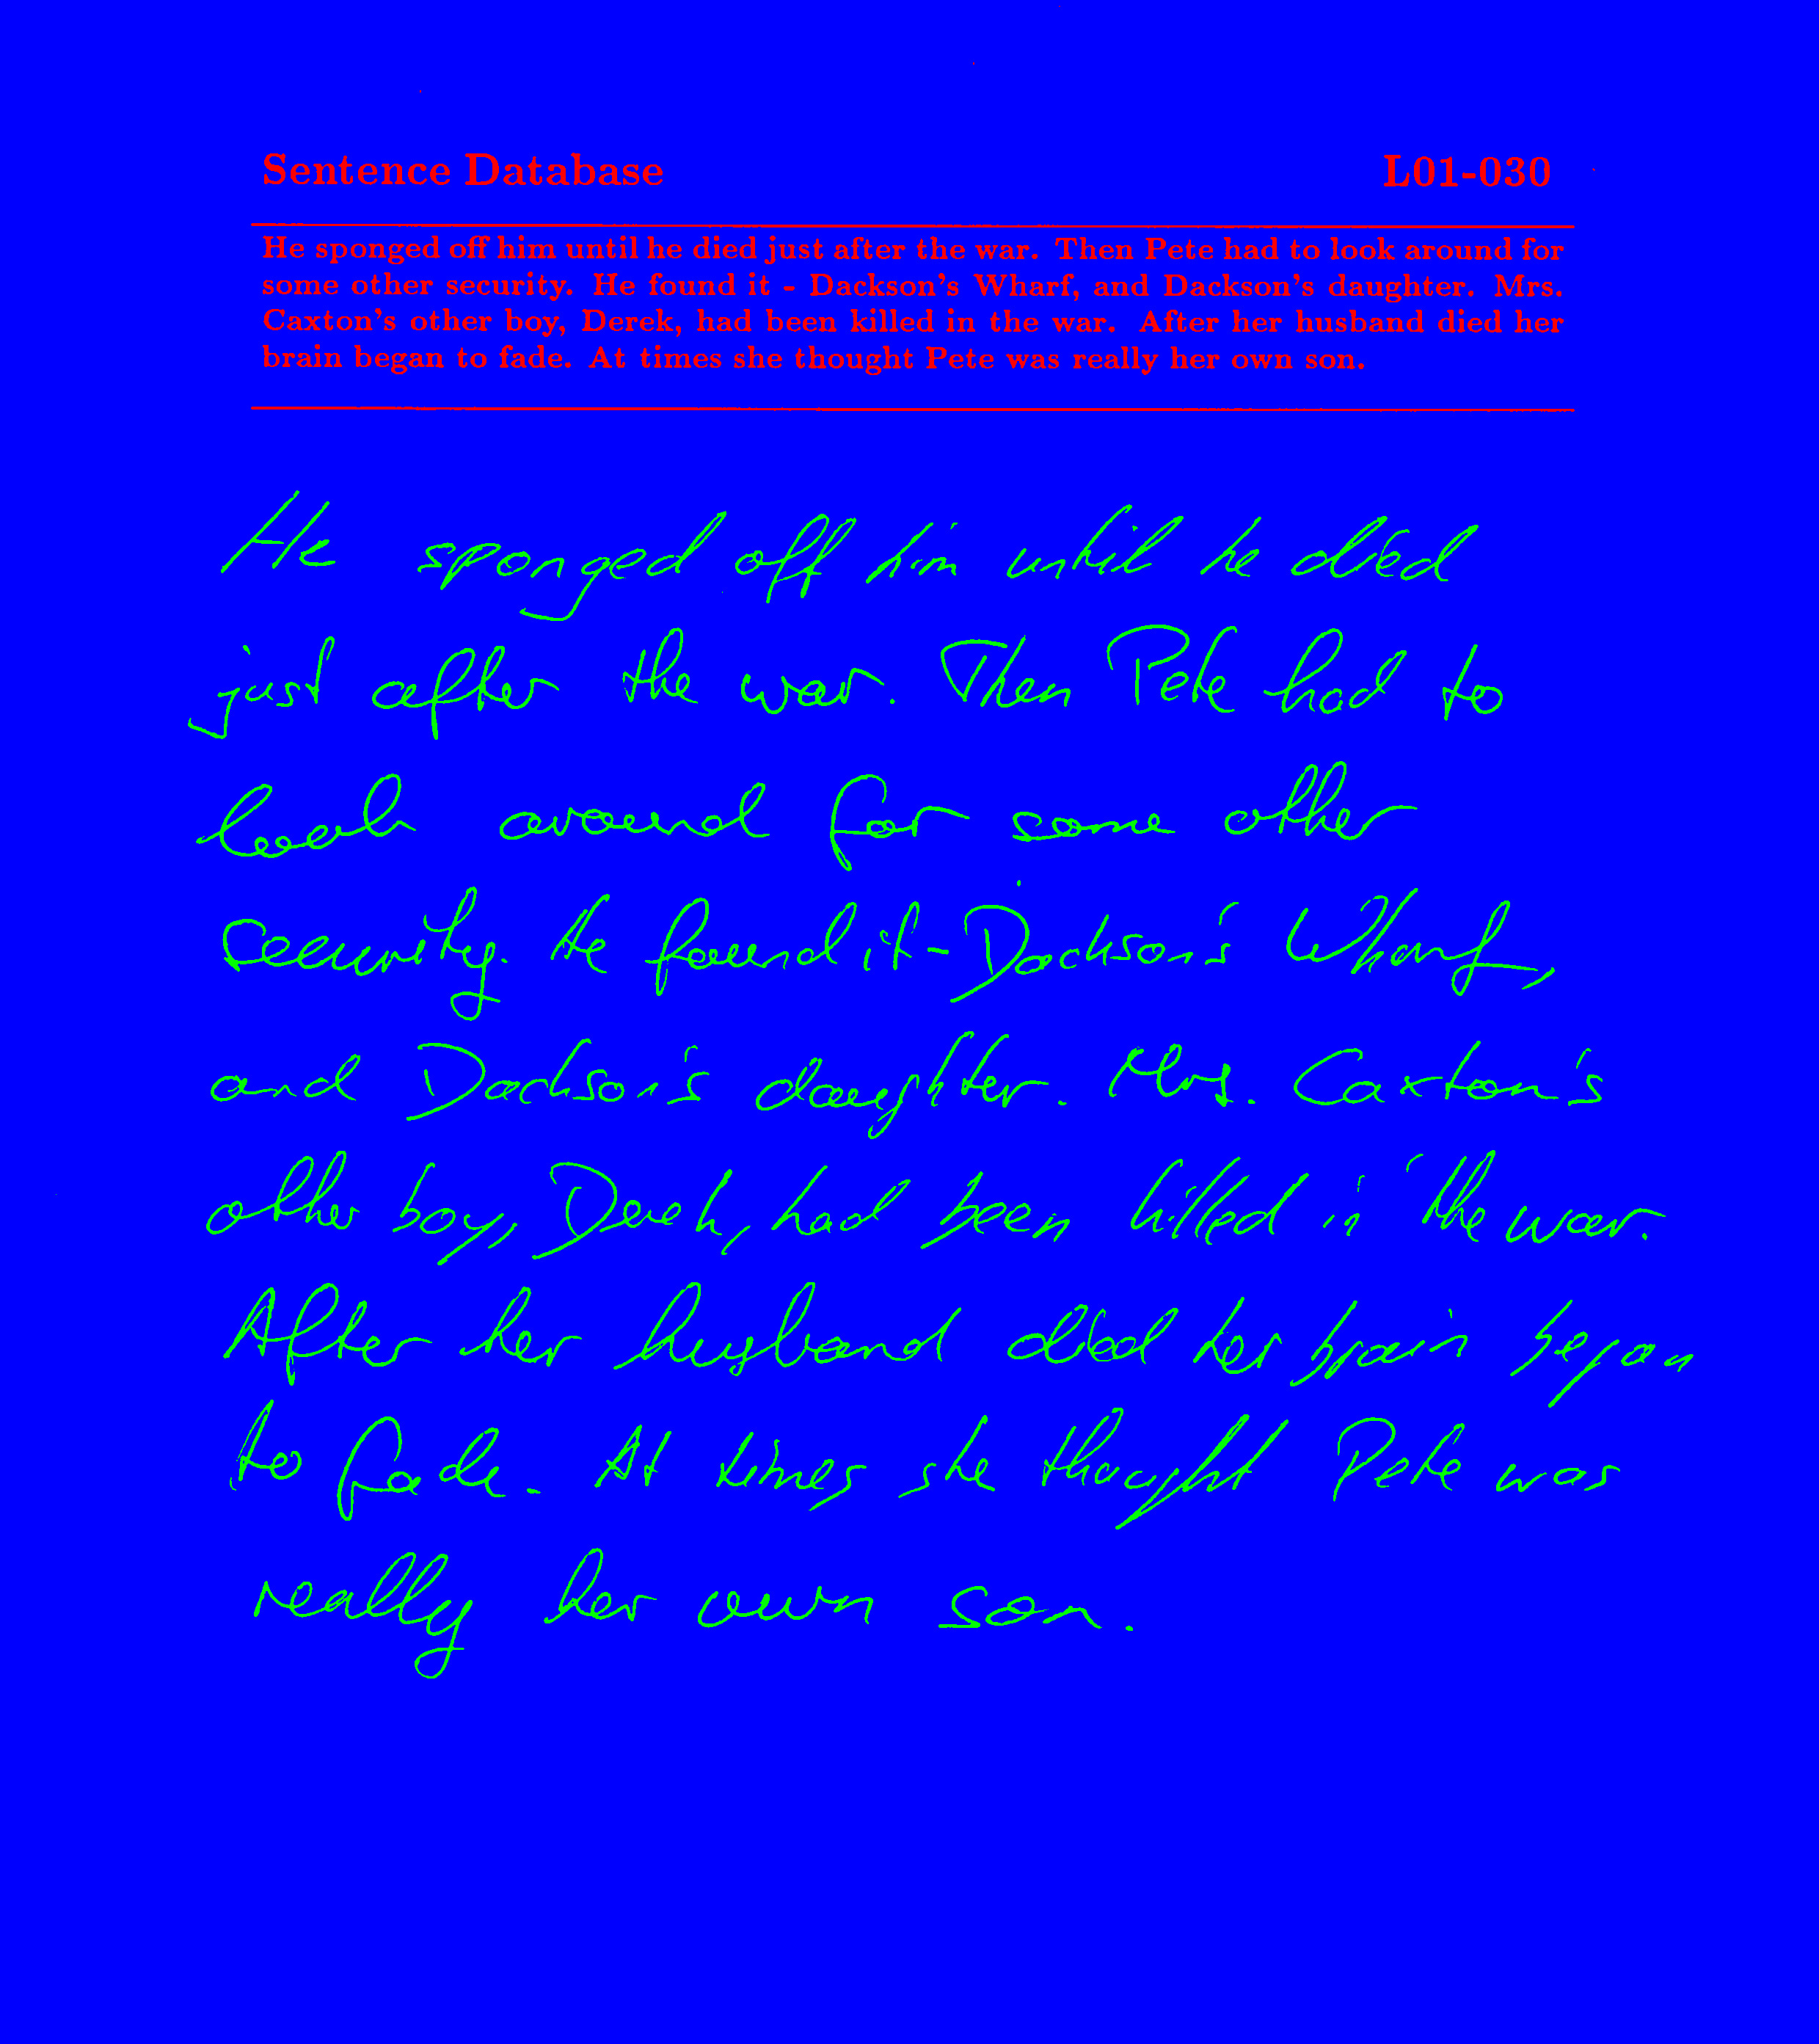 Sentence Database L01-030
He sponged off him until he died just after the war. Then Pete had to look around for
some other security. He found it - Dackson's Wharf, and Dackson's daughter. Mrs.
Caxton's other boy, Derek, had been killed in the war. After her husband died her
brain began to fade. At times she thought Pete was really her own son.
He sponged off him until he died
just after the war. Then Pete had to
look around for some other
security. He found it - Dackson's Wharf,
and Dackson's daughter. Mrs. Caxton's
other boy, Derek, had been killed in the war.
After her husband died her brain began
to fade. At times she thought Pete was
really her own son.